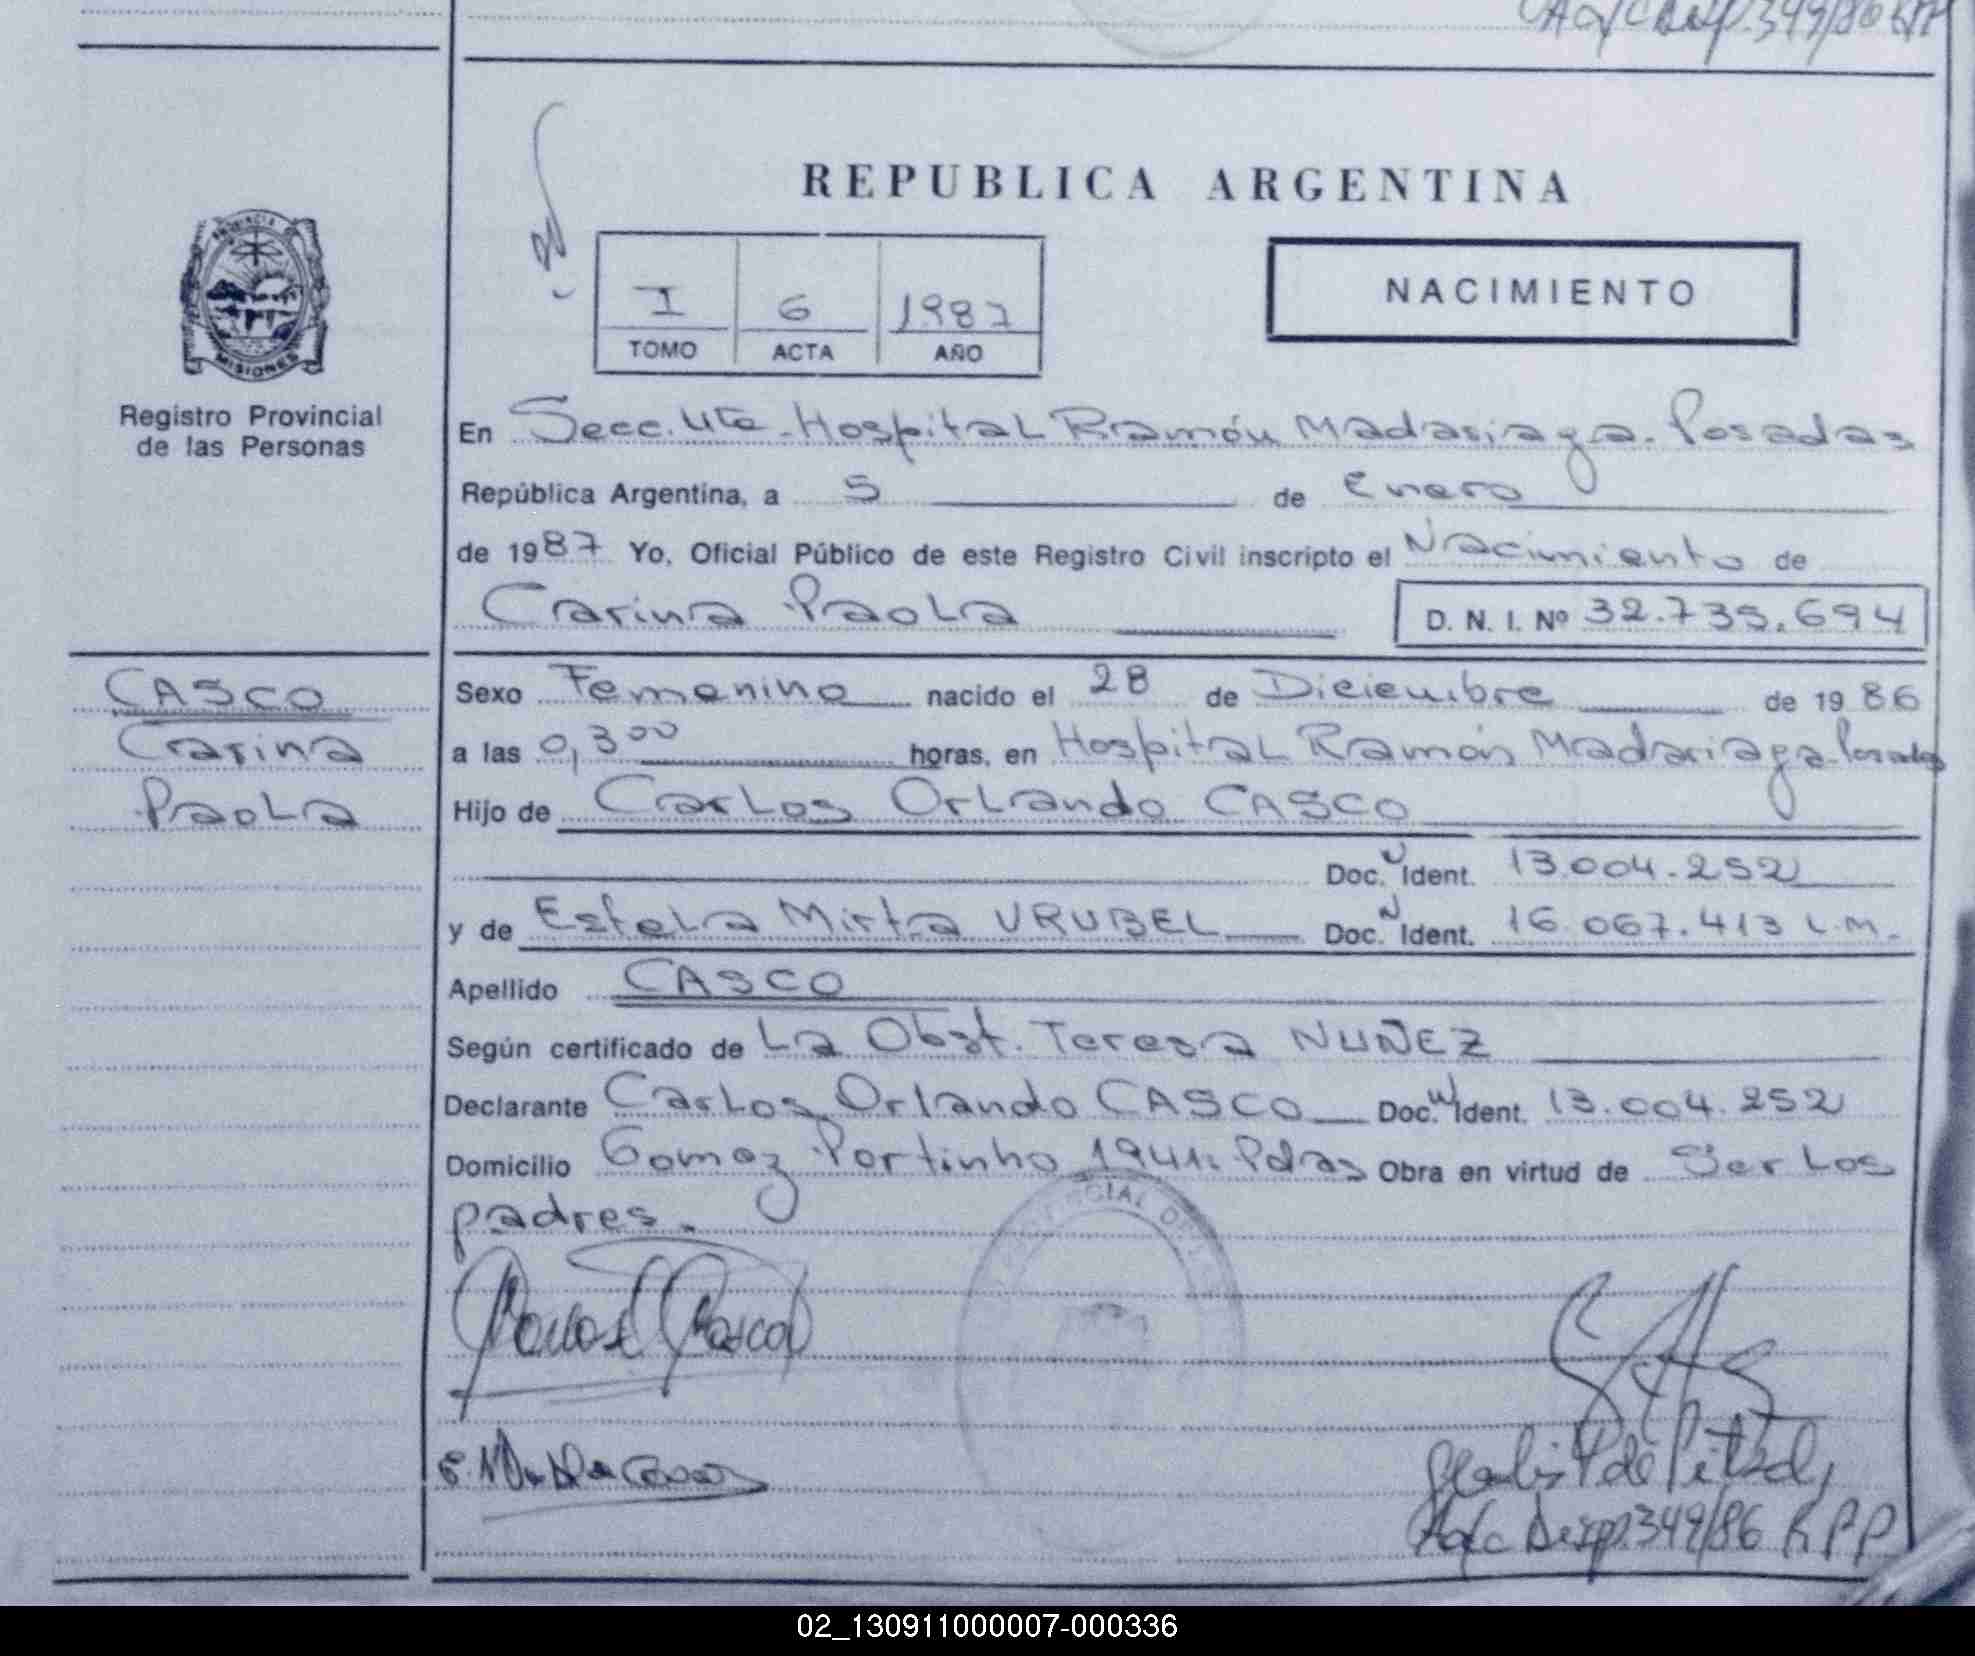 349/86
REPUBLICA ARGENTINA
I 6 1987
TOMO ACTA AÑO
NACIMIENTO
PROVINCIA DE
MISIONES
Registro Provincial
de las Personas
En Secc. 4ta. Hospital Ramón Madariaga. Posadas
República Argentina, a 5 de Enero
de 1987 Yo, Oficial Público de este Registro Civil inscripto el Nacimiento de
Carina Paola D. N. I. Nº 32.735.694
CASCO
Carina
Paola
Sexo Femenino nacido el 28 de Diciembre de 1986
a las 0,300 horas, en Hospital Ramón Madariaga. Posadas
Hijo de Carlos Orlando CASCO
Doc. Ident. 13.004.252
y de Estela Mirta URUBEL Doc. Ident. 16.067.413 L.M.
Apellido CASCO
Según certificado de La Obst. Teresa NUÑEZ
Declarante Carlos Orlando CASCO Doc. Ident. 13.004.252
Domicilio Gomez Portinho 1941. Pdas Obra en virtud de Ser Los
padres.
349/86 RPP
02_130911000007-000336